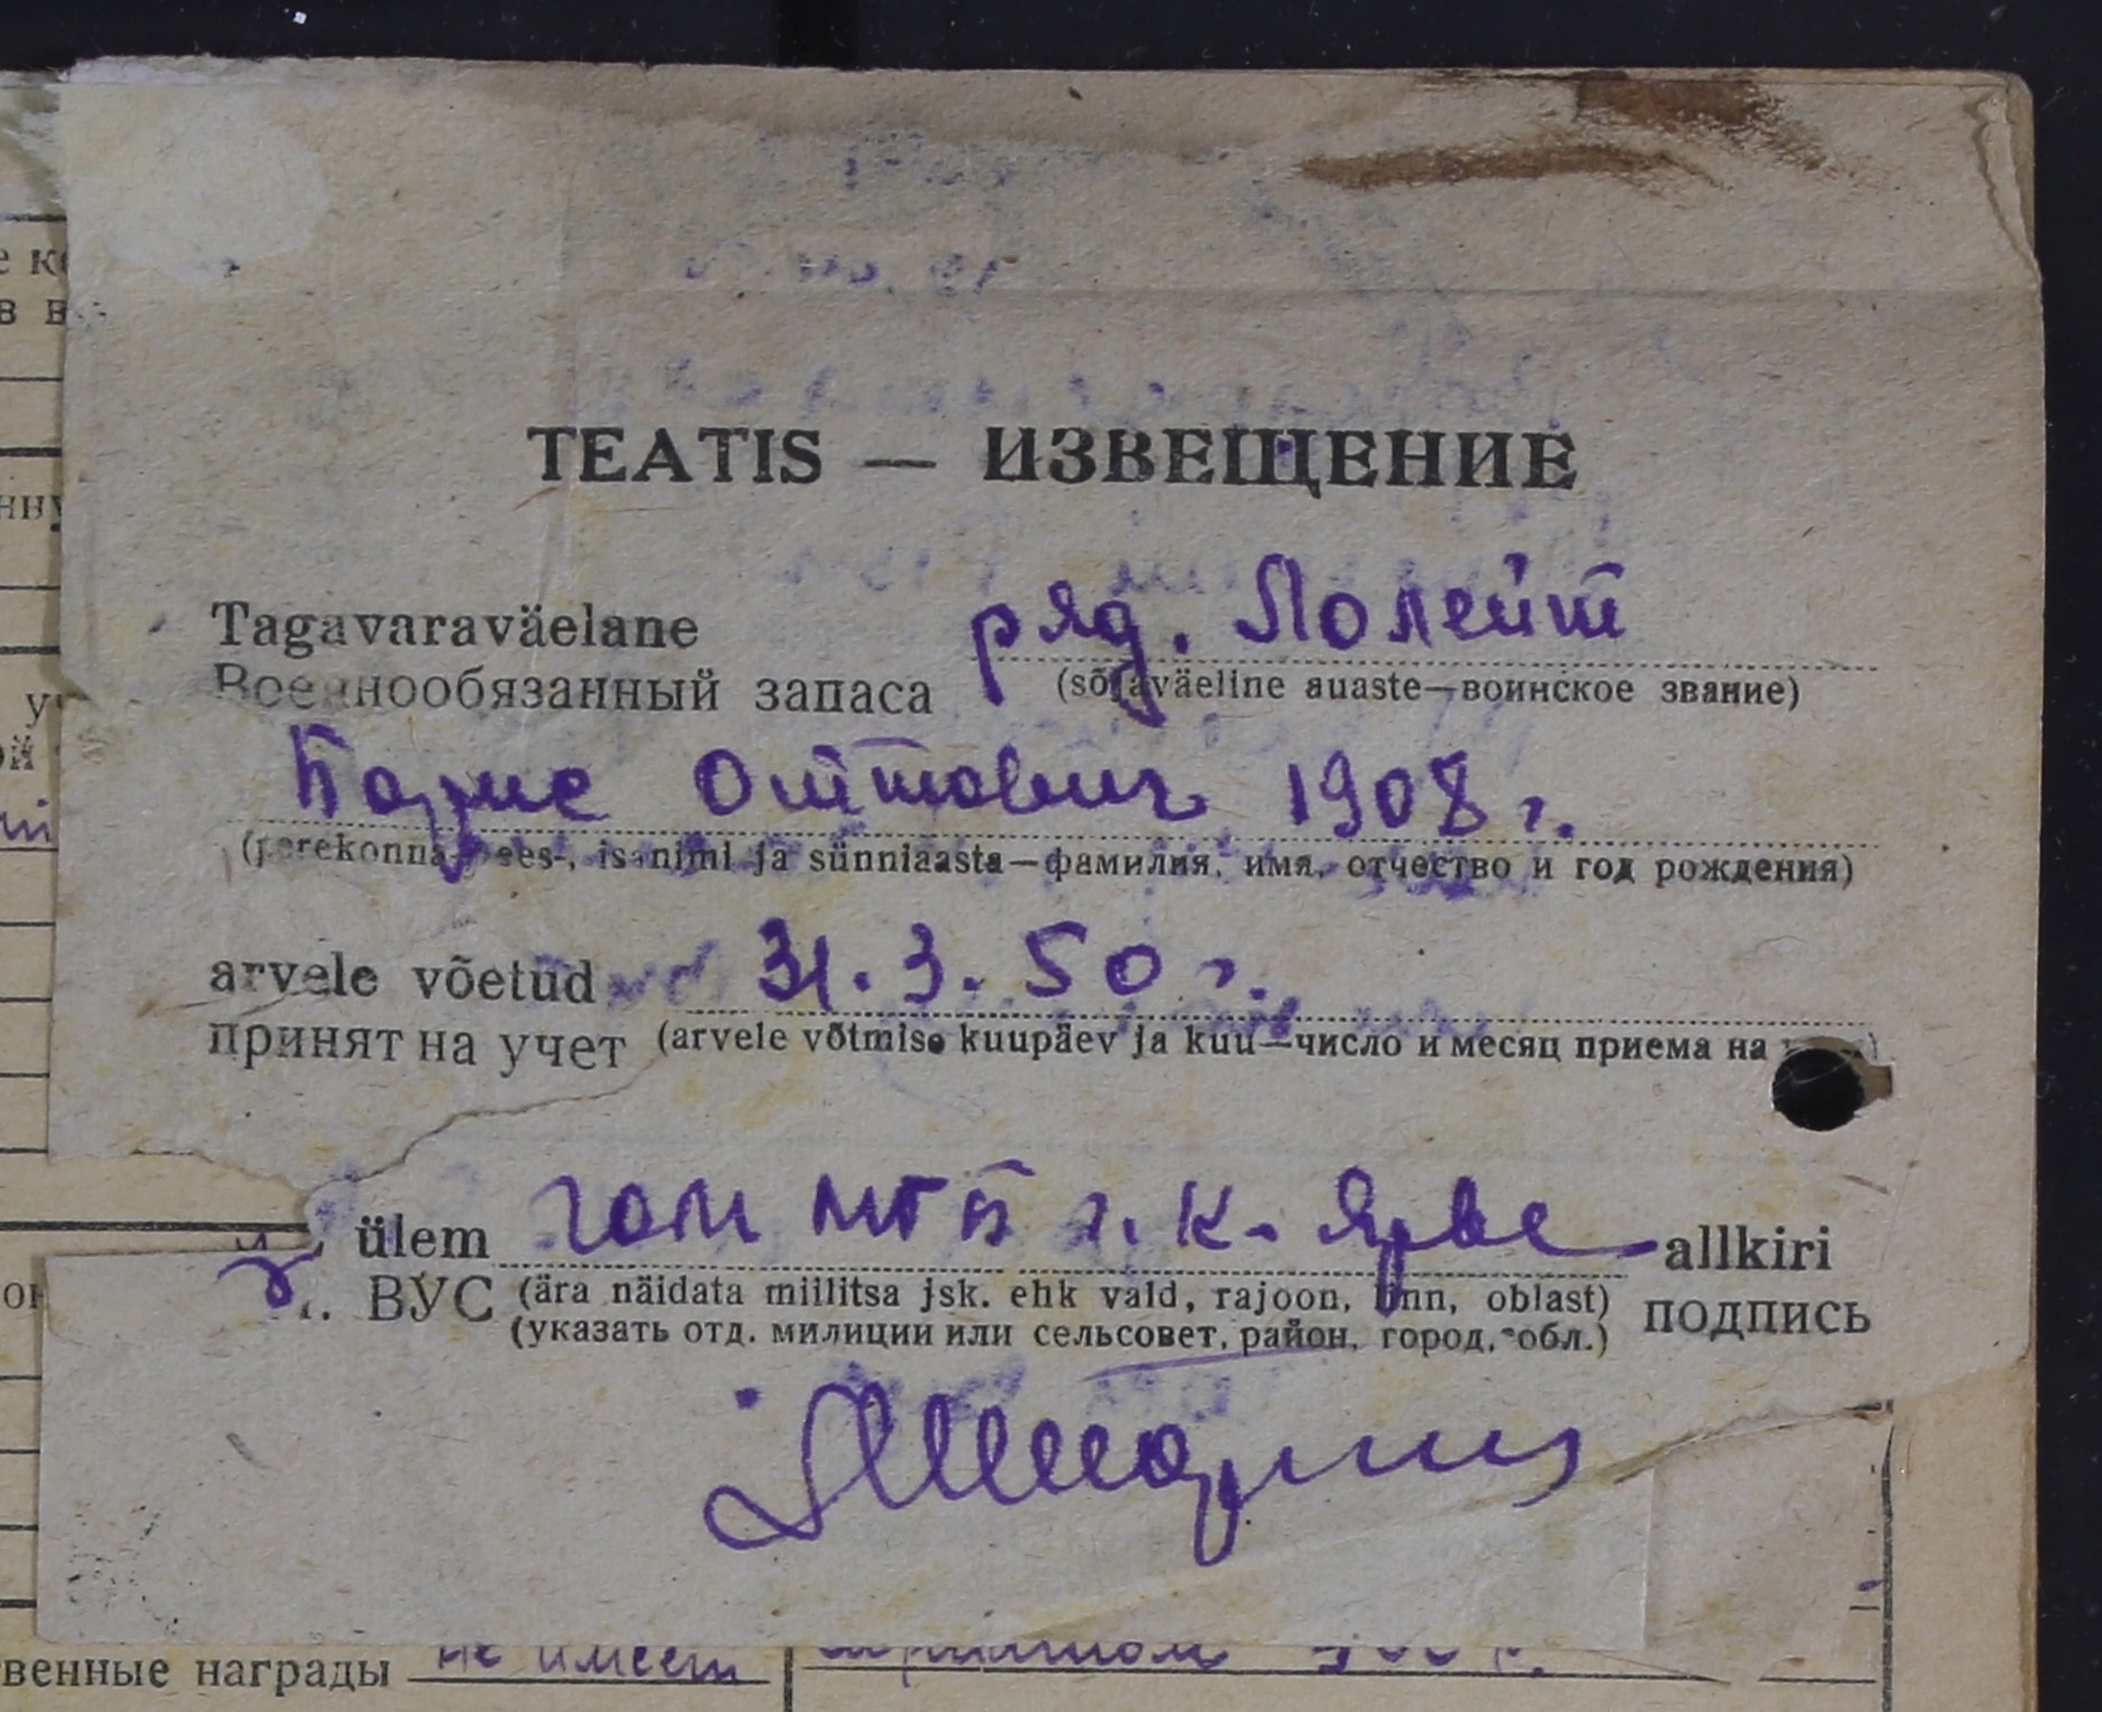 TEATIS — ИЗВЕЩЕНИЕ
Tagavaraväelane ряд. Лолейт
Военнообязанный запаса (sõjaväeline auaste—воинское звание)
Борис Оттович 1908 г.
(perekonna-, ees-, isanimi ja sünniaasta—фамилия, имя, отчество и год рождения)
arvele võetud 31.3.50 г.
принят на учет (arvele võtmise kuupäev ja kuu—число и месяц приема на
ülem ГОМ МГБ г. К-Ярве allkiri
ВУС (ära näidata miilitsa jsk. ehk vald, rajoon, linn, oblast) подпись
(указать отд. милиции или сельсовет, район, город, обл.)
венные награды не имеет